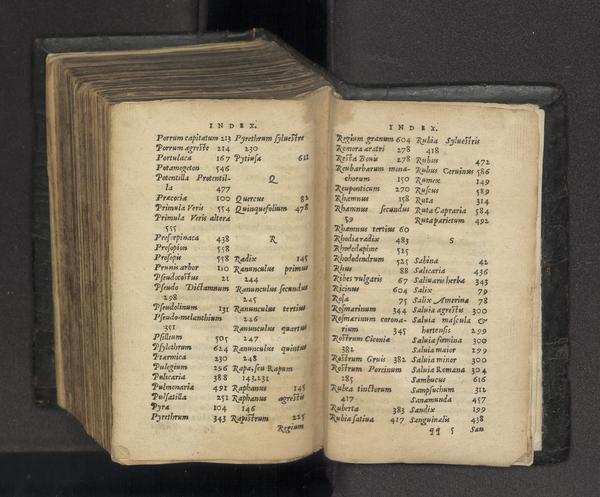 INDEX.
Porrum capitatum 213
Porrum agreste 214
Portulaca 167
Potamegeton 546
Potentilla Potentil-
la 477
Præcocia 100
Primula Veris 554
Primula Veris altera
555
Proserpinaca 438
Prosopion 558
Prosopis 558
Prunis arbor 110
Pseudocostus 21
Pseudo Dictamnum
298
Pseudolinum 131
Pseudo-melanthium
351
Psillium 505
Psylethrum 624
Ptarmica 230
Pulegium 296
Pulicaria 388
Pulmonaria 491
Pulsatilla 251
Pyra 104
Pyrethrum 343
Pyrethrum sylvestre
230
Pytiusa 611
Q
Quercus 82
Quinquefolium 478
R
Radix 145
Ranunculus primus
244
Ranunculus secundus
245
Ranunculus tertius
246
Ranunculus quartus
247
Ranunculus quintus
248
Rapa, seu Rapum
143,231
Raphanus 145
Raphanus agrestis
146
Rapistrum 225
Regium
INDEX.
Regium granum 604
Remora aratri 278
Resta Bovis 278
Reubarbarum mona-
chorum 150
Reuponticum 270
Rhamnus 158
Rhamnus secundus
59
Rhamnus tertius 60
Rhodia radix 483
Rhododaphne 525
Rhododendrum 525
Rhus 88
Ribes vulgaris 67
Ricinus 604
Rosa 75
Rosmarinum 344
Rosmarinum corona-
rium 345
Rostrum Ciconiæ
382
Rostrum Gruis 382
Rostrum Porcinum
185
Rubea tinctorum
417
Ruberta 383
Rubia sativa 417
Rubia Sylvestris
418
Rubus 472
Rubus Cervinus 586
Rumex 149
Ruscus 589
Ruta 314
Ruta Capraria 584
Ruta parietum 492
S
Sabina 42
Salicaria 436
Salivaris herba 343
Salix 79
Salix Amerina 78
Salvia agrestis 300
Salvia mascula &
hortensis 299
Salvia fœmina 300
Salvia maior 299
Salvia minor 300
Salvia Romana 304
Sambucus 616
Sampsuchum 312
Sanamunda 457
Sandix 199
Sanguinalis 438
qq 5 San